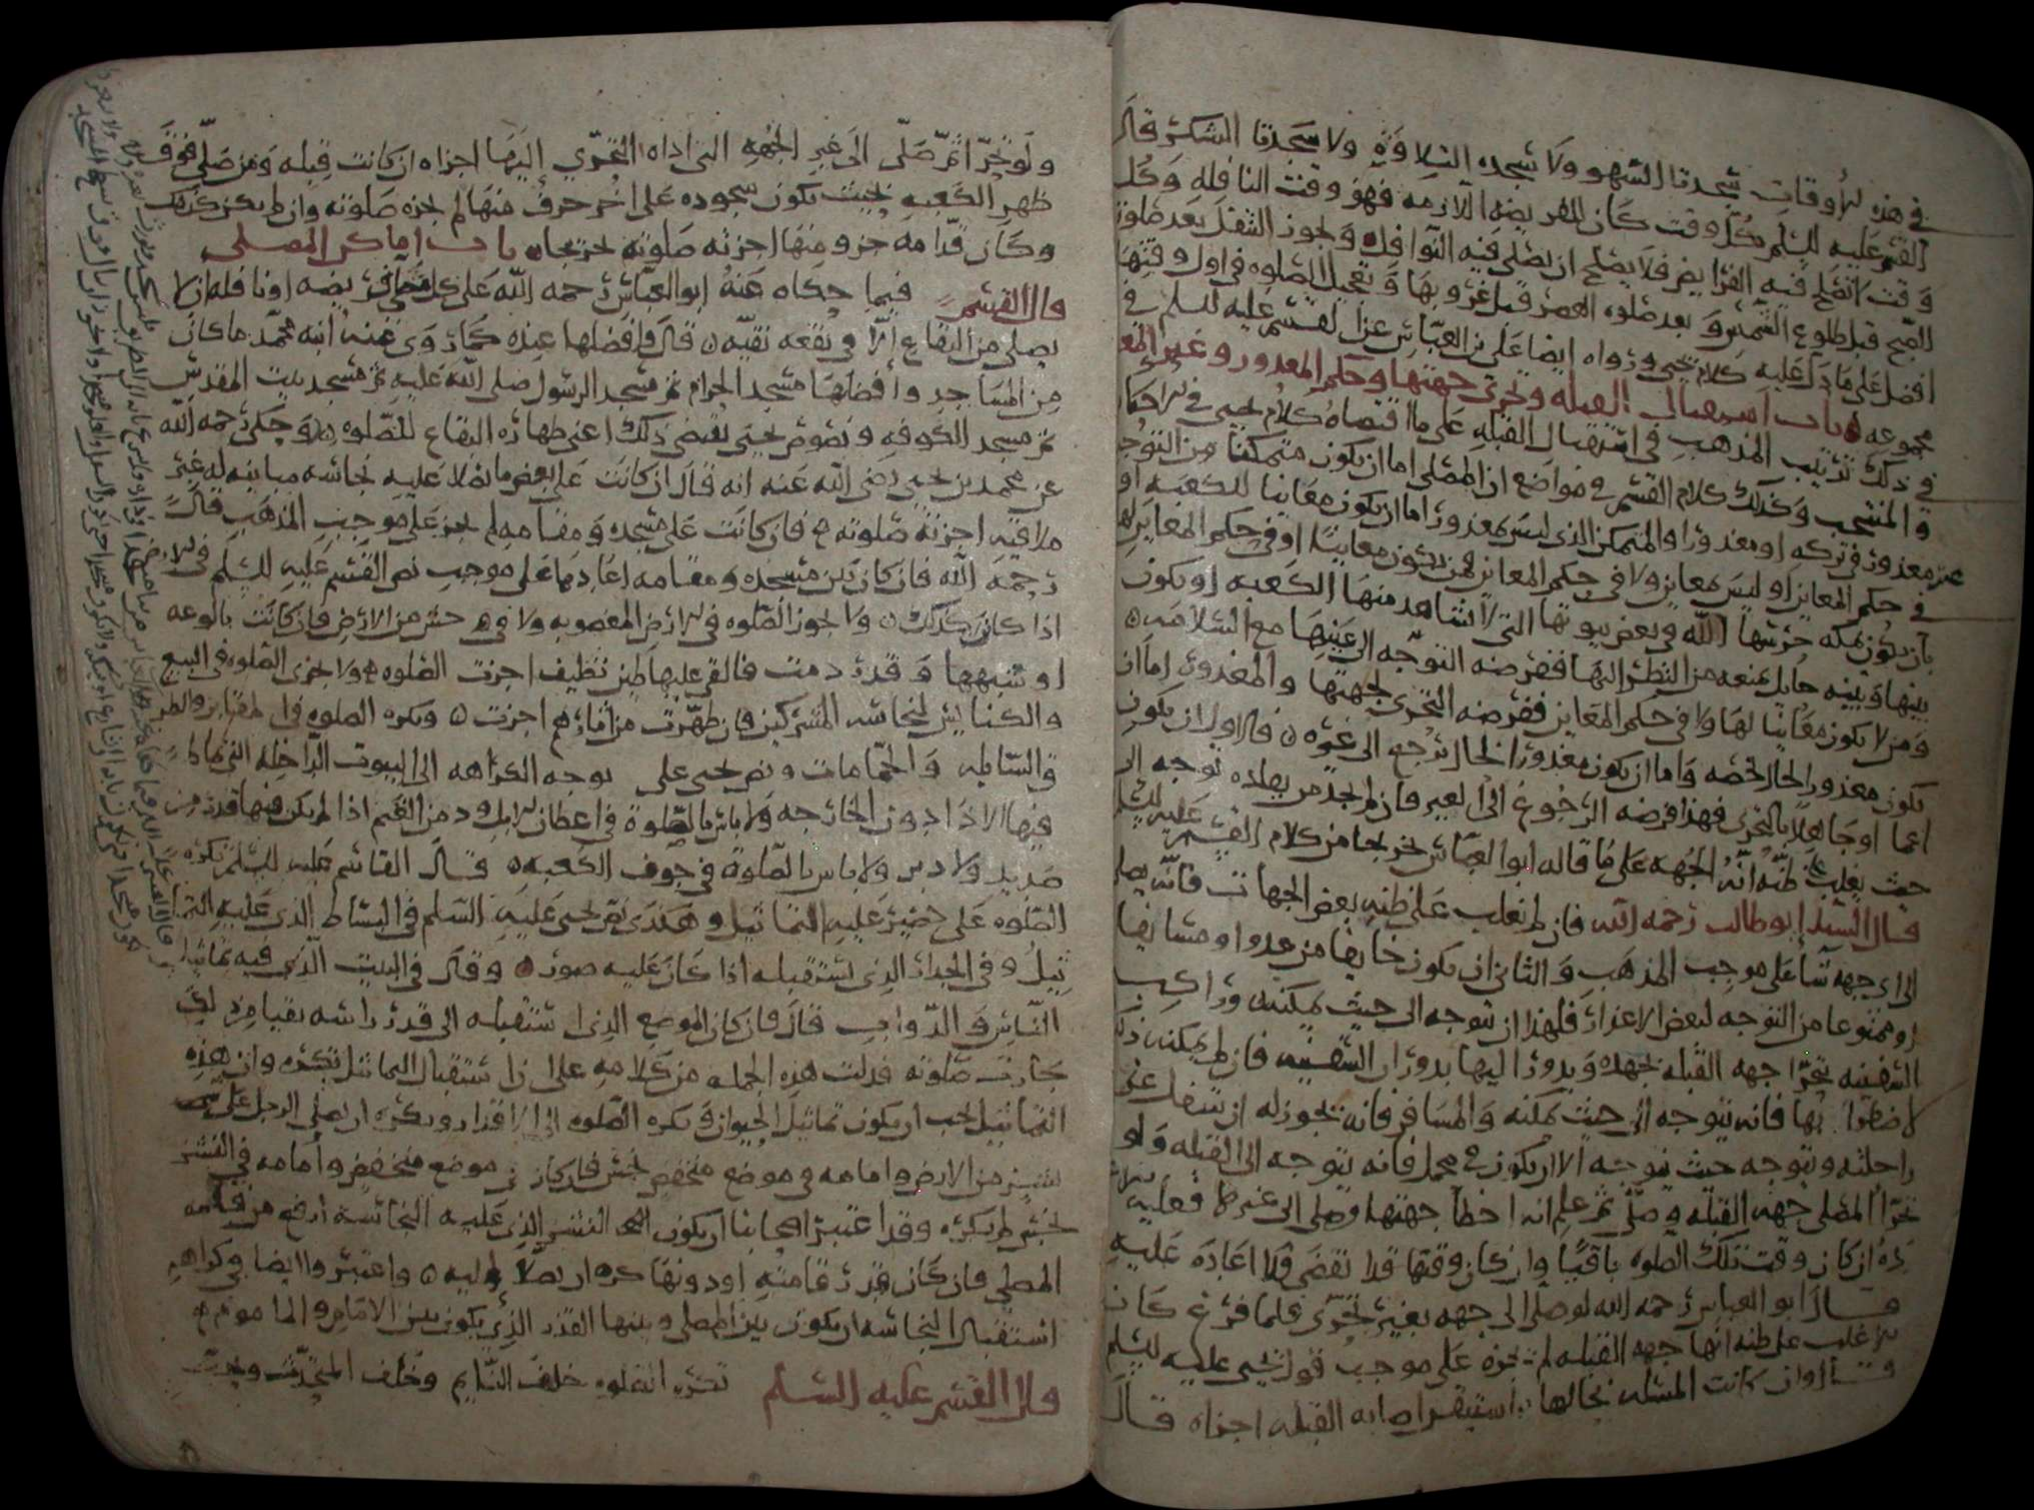 في هذه الأوقات سجدتا السهو ولا سجده التلاوة ولا سجدتا الشكر قال
القسم عليه السلم كل وقت كان للفريضه اللازمه فهو وقت النافله وكل
وقت لا تصلح فيه الفرايض فلا يصلح ان يصلى فيه النوافل ويجوز التنفل بعد صلوة
الصبح قبل طلوع الشمس وبعد صلوه العصر قبل غروبها وتعجيل الصلوه في اول وقتها
افضل على ما دل عليه كلام يحيى ورواه ايضا علي بن العباس عن القسم عليه السلم في
مجموعه باب استقبال القبله وتحري جهتها وحكم المعذور وغير المعذور
في ذلك ترتيب المذهب في استقبال القبله على ما اقتضاه كلام يحيى في الاحكام
والمنتخب وكذلك كلام القسم في مواضع ان المصلي اما ان يكون متمكنا من التوجه
غير معذور في تركه او معذورا والمتمكن الذي ليس بمعذور اما ان يكون معاينا للكعبه او
في حكم المعاين او ليس بمعاين ولا في حكم المعاين فمن يكون معاينا او في حكم المعاين له
بان يكون بمكه حرسها الله وبعض بيوتها التي لا تشاهد منها الكعبه او يكون
بينها وبينه حايل يمنعه من النظر اليها ففرضه التوجه الى عينها مع السلامه
ومن لا يكون معاينا لها ولا في حكم المعاين ففرضه التحري لجهتها والمعذور اما ان
يكون معذورا لحال تخصه واما ان يكون معذورا لحال ترجع الى غيره فالاول ان يكون
اعما او جاهلا بالتحري فهذا فرضه الرجوع الى الغير فان لم يجد من يقلده توجه الى
حيث يغلب على ظنه انه الجهه على ما قاله ابو العباس تخريجا من كلام القسم عليه السلم
قال السيد ابو طالب رحمه الله فان لم يغلب على ظنه بعض الجهات فانه يصلي
الى اي جهه شا على موجب المذهب والثاني ان يكون خايفا من عدو او مسايفا
او ممنوعا من التوجه لبعض الاعذار فلهذا ان يتوجه الى حيث يمكنه وراكب
السفينه يتحرا جهه القبله بجهده ويدور اليها بدوران السفينه فان لم يمكنه ذلك
لاضطرابها فانه يتوجه الى حيث يمكنه والمسافر فانه يجوز له ان يتنفل على
راحلته ويتوجه حيث توجه الا ان يكون في محمل فانه يتوجه الى القبله ولو
تحرا المصلي جهه القبله وصلى ثم علم انه اخطأ جهتها وصلى الى غيرها فعليه الاعا
ده ان كان وقت تلك الصلوه باقيا وان كان وقتها قد انقضى فلا اعاده عليه
قال ابو العباس رحمه الله لو صلى الى جهه بغير تحري فلما فرغ كان
الاغلب على ظنه انها جهه القبله لم تجزه على موجب قول يحيى عليه السلم
قال وان كانت المسئله بحالها واستيقن اصابه القبله اجزاه قال
ولو تحرا ثم صلى الى غير الجهه التي اداه التحري إليها اجزاه ان كانت قبله ومن صلى فوق
ظهر الكعبه بحيث يكون سجوده على اخر حرف منها لم تجزه صلوته وان لم يكن كذلك
وكان قدامه جزو منها اجزته صلوته تخريجا باب اماكن المصلى
قال القسم فيما حكاه عنه ابو العباس رحمه الله على كل مصلي فريضه او نافله ان لا
يصلي من البقاع إلا في بقعه نقيه قال وافضلها عنده كما روى عنه ابنه محمد ما كان
من المساجد وأفضلها مسجد الحرام ثم مسجد الرسول صلى الله عليه ثم مسجد بيت المقدس
ثم مسجد الكوفه ونصوص يحيى تقتضي ذلك اعني طهاره البقاع للصلوه وحكى رحمه الله
عن محمد بن يحيى رضي الله عنه انه قال ان كانت على بعض ما يصلا عليه نجاسه مباينه له غير
ملاقيه اجزته صلوته فان كانت على مسجده ومقامه لم يجز على موجب المذهب قال
رحمه الله فان كان بين مسجده ومقامه اعادها على موجب نص القسم عليه السلم في الارض
اذا كان كذلك ولا يجوز الصلوه في الارض المغصوبه ولا في حش من الارض فان كانت بالوعه
او شبهها وقد ردمت فالقي عليها طين نظيف اجزت الصلوه ولا تجزى الصلوه في البيع
والكنايس لنجاسه المشركين فان طهرت من اثارهم اجزت ويكره الصلوه في المقابر والطر
ق السابله والحمامات ونص يحيى على توجه الكراهه الى البيوت الداخله التي يماط
فيها الاذا دون الخارجه ولا باس بالصلوة في اعطان الابل ودمن الغنم اذا لم يكن فيها قذر من
صديد ولا دم ولا باس بالصلوة في جوف الكعبه قال القاسم عليه السلم تكره
الصلوه على حصير عليه التماثيل وهكذى نص يحيى عليه السلم في البساط الذي عليه التما
ثيل وفي الجدار الذي تستقبله اذا كان عليه صور وقال في البيت الذي فيه تماثيل
الناس والدواب قال فان كان الموضع الذي استقبله الى قدر راسه نقيا من ذلك
جازت صلوته فدلت هذه الجمله من كلامه على ان استقبال التماثيل تكره وان هذه
التماثيل يجب ان يكون تماثيل الحيوان ويكره الصلوه الى الاقذار ويكره ان يصلي الرجل على
نشز من الارض وامامه في موضع منخفض نجس فان كان في موضع منخفض وأمامه في النشز
نجس لم يكره وقد اعتبر اصحابنا ان يكون النشز الذي عليه النجاسه ارفع من قامه
المصلي فان كان قدر قامته او دونها كره ان يصلا اليه واعتبروا ايضا في كراهه
استقبال النجاسه ان يكون بين المصلي وبينها القدر الذي يكون بين الامام والماموم
قال القسم عليه السلم تكره الصلوه خلف النايم وخلف المتحدث